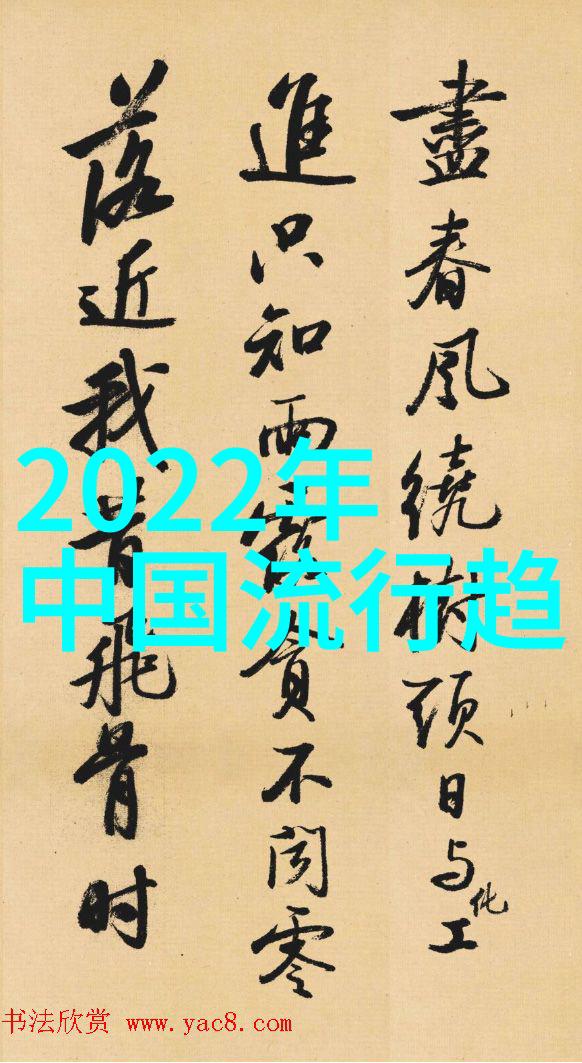 盡春風繞樹頭日与化工
進只知雨露貪不聞零
落近我昔飛骨时
2022年
中国流行趋
书法欣赏 www.yac8.com